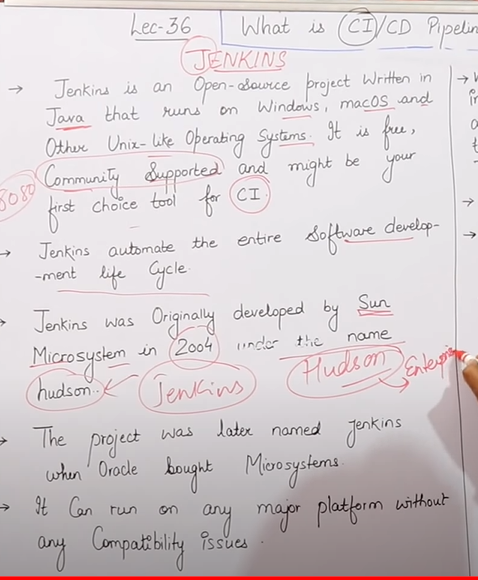 Lec-36
What is CI/CD Pipelin
JENKINS
→ Jenkins is an Open-source project Written in
Java that runs on Windows, macOS and
Other Unix-like Operating Systems. It is free,
Community Supported and might be your
first choice tool for CI
8080
→ Jenkins automate the entire Software develop-
-ment life Cycle.
→ Jenkins was Originally developed by Sun
Microsystem in 2004 under the name
hudson.
Jenkins
Hudson
Enterpris
→ The project was later named Jenkins
when Oracle bought Microsystems.
→ It Can run on any major platform without
any Compatibility issues.